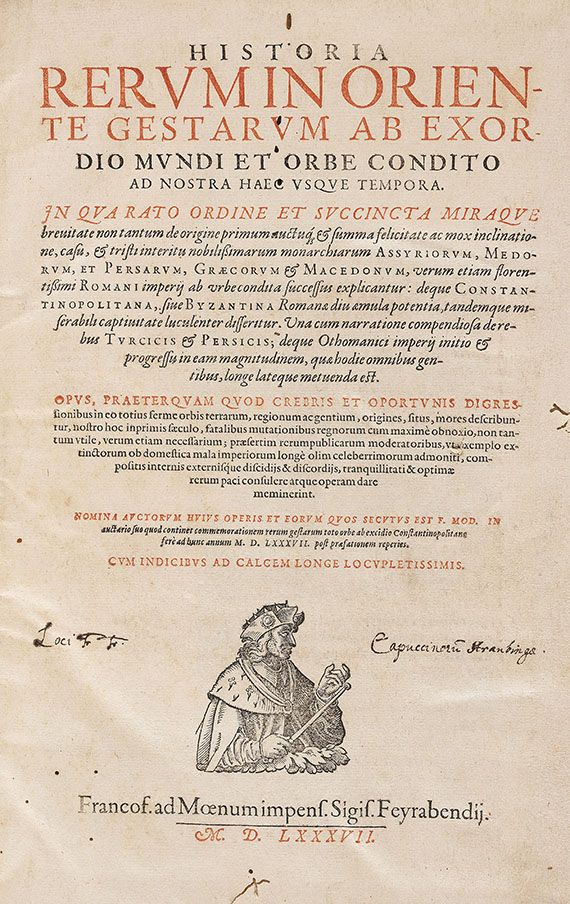 HISTORIA
RERVM IN ORIEN-
TE GESTARVM AB EXOR-
DIO MVNDI ET ORBE CONDITO
AD NOSTRA HAEC VSQVE TEMPORA.
IN QVA RATO ORDINE ET SVCCINCTA MIRAQVE
breuitate non tantum de origine primum auctuq́, & summa felicitate ac mox inclinatio-
ne, casu, & tristi interitu nobilißimarum monarchiarum ASSYRIORVM, MEDO-
RVM, ET PERSARVM, GRÆCORVM & MACEDONVM, verum etiam floren-
tißimi ROMANI imperij ab vrbe condita successus explicantur: deque CONSTAN-
TINOPOLITANA, siue BYZANTINA Romanæ diu æmula potentia, tandemque mi-
serabili captiuitate luculenter disseritur. Vna cum narratione compendiosa de re-
bus TVRCICIS & PERSICIS; deque Othomanici imperij initio &
progressu in eam magnitudinem, quæ hodie omnibus gen-
tibus, longe lateque metuenda est.
OPVS, PRAETERQVAM QVOD CREBRIS ET OPORTVNIS DIGRES-
sionibus in eo totius ferme orbis terrarum, regionum ac gentium, origines, situs, mores describun-
tur, nostro hoc inprimis sæculo, fatalibus mutationibus regnorum cum maximè obnoxio, non tan-
tum vtile, verum etiam necessarium; præsertim rerumpublicarum moderatoribus, vt exemplo ex-
tinctorum ob domestica mala imperiorum longè olim celeberrimorum admoniti, com-
positis internis externisque dissidijs & discordijs, tranquillitati & optimæ
rerum paci consulere atque operam dare
meminerint.
NOMINA AVCTORVM HVIVS OPERIS ET EORVM QVOS SECVTVS EST F. MOD. IN
auctario suo quod continet commemorationem rerum gestarum toto orbe ab excidio Constantinopolitano
ferè ad hunc annum M. D. LXXXVII. post præfationem reperies.
CVM INDICIBVS AD CALCEM LONGE LOCVPLETISSIMIS.
Loci FF.
Capuccinorū Straubingæ.
Francof. ad Mœnum impens. Sigis. Feyrabendij.
M. D. LXXXVII.